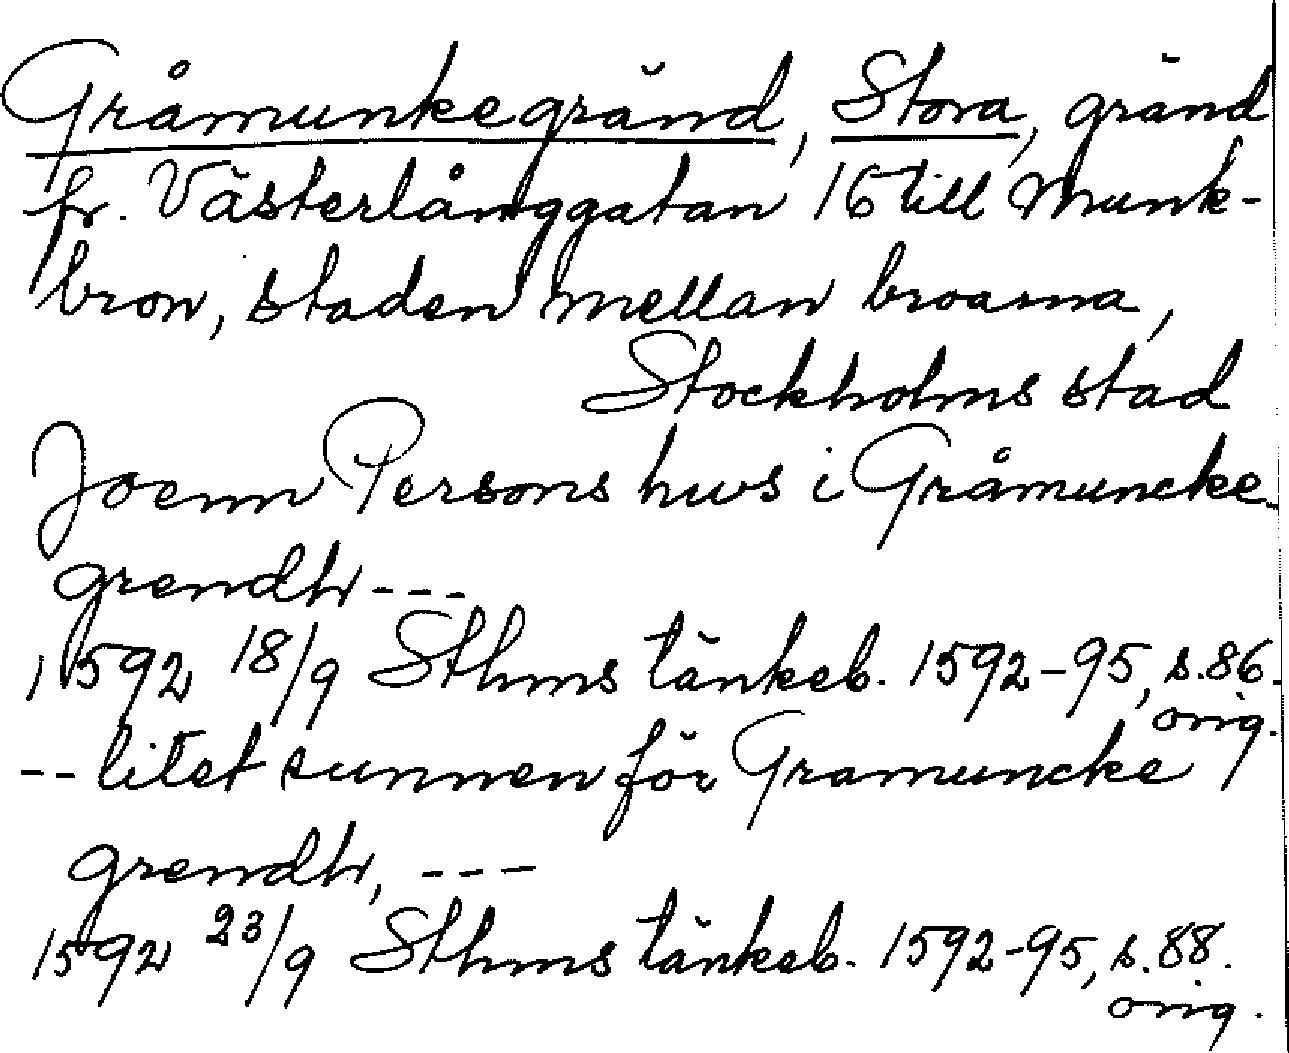 Gråmunkegränd, Stora, gränd
fr. Västerlånggatan 16 till Munk-
bron, staden mellan broarna,
Stockholms stad
Joenn Persons hws i Gråmuncke-
grendh ---
1592 18/9 Sthms tänkeb. 1592-95, s. 86.
orig.
-- litet sunnen för Gramuncke
grendh, ---
1592 23/9 Sthms tänkeb. 1592-95, s. 88.
orig.